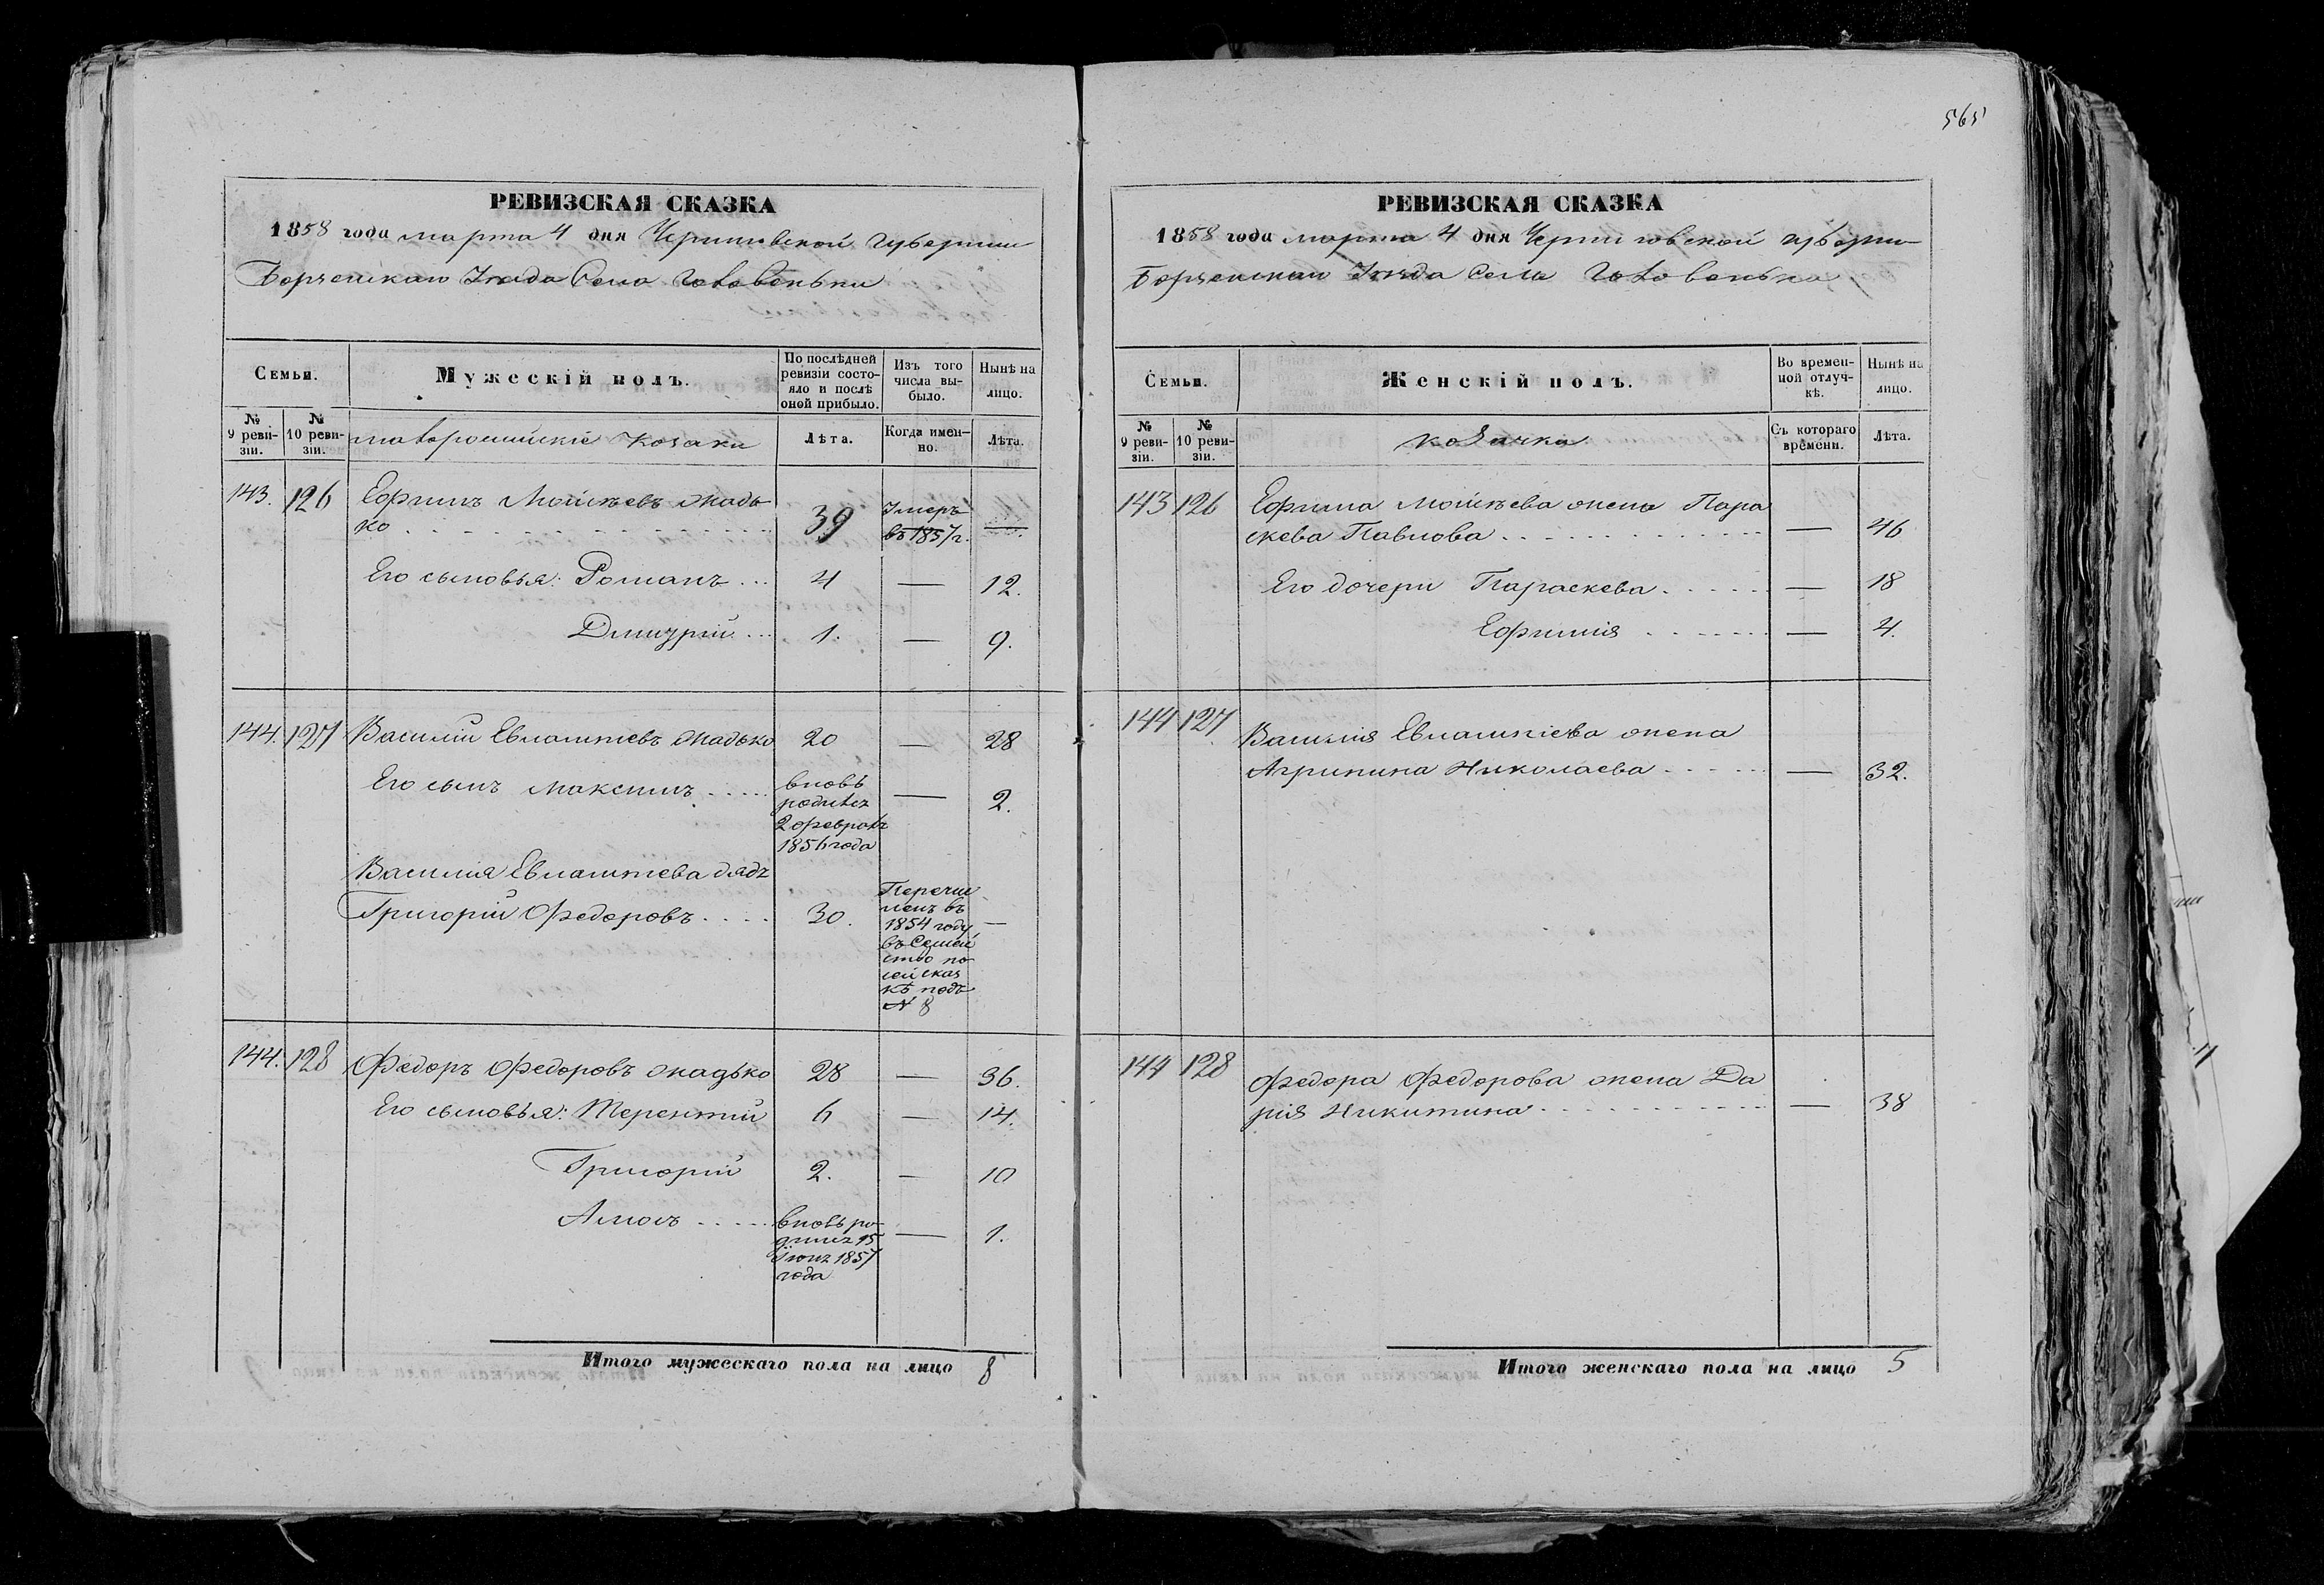 565
РЕВИЗСКАЯ СКАЗКА
1858 года марта 4 дня Черниговской губернии
Борзенскаго Уезда Села Головеньки
Семьи.
Мужескій полъ.
По послѣдней ревизіи состояло и послѣ оной прибыло.
Изъ того числа выбыло.
Нынѣ на лицо.
№ 9 ревизіи.
№ 10 ревизіи.
малороссійскіе козаки
Лѣта.
Когда именно.
Лѣта.
143. 126 Ефимъ Моисѣевъ Жадь
ко 39 Умеръ въ 1857 г. —
Его сыновья: Романъ 4 — 12.
Дмитрій 1. — 9.
144. 127 Василій Евлампіевъ Жадько 20 — 28
Его сынъ Максимъ вновь родился 2 февраля 1856 года — 2.
Василія Евлампіева дядя
Григорій Федоровъ 30. Перечисленъ въ 1854 году въ Семейство по сей сказкѣ подъ № 8 —
144. 128 Федоръ Федоровъ Жадько 28 — 36.
Его сыновья: Терентій 6 — 14.
Григорій 2. — 10
Амосъ вновь родился 15 Іюня 1857 года — 1.
Итого мужескаго пола на лицо 8
РЕВИЗСКАЯ СКАЗКА
1858 года марта 4 дня Черниговской губерни
Борзенскаго Уезда Села Головеньки
Семьи.
Женскій полъ.
Во временной отлучкѣ.
Нынѣ на лицо.
№ 9 ревизіи.
№ 10 ревизіи.
козачки
Съ котораго времени.
Лѣта.
143 126 Ефима Моисѣева жена Пара
скева Павлова — 46
Его дочери Параскева — 18
Ефимія — 4.
144 127 Василія Евлампіева жена
Агрипина Николаева — 32.
144 128 Федора Федорова жена Да
рія Никитина — 38
Итого женскаго пола на лицо 5